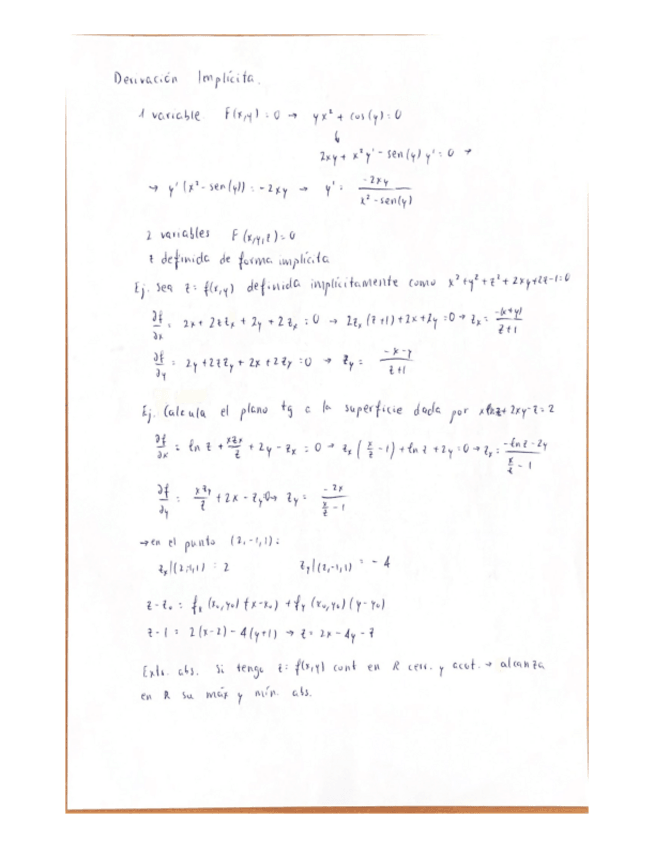 Derivación Implícita.
1 variable F(x,y)=0 → yx² + cos(y)=0
↓
2xy + x²y' - sen(y) y' = 0 →
→ y'(x² - sen(y)) = -2xy → y' = -2xy / (x² - sen(y))
2 variables F(x,y,z)=0
z definida de forma implícita
Ej. Sea z=f(x,y) definida implícitamente como x²+y²+z²+2xy+2z-1=0
∂f/∂x = 2x + 2zzₓ + 2y + 2zₓ = 0 → 2zₓ(z+1)+2x+2y=0 → zₓ = -(x+y)/(z+1)
∂f/∂y = 2y + 2zzy + 2x + 2zy = 0 → zy = (-x-y)/(z+1)
Ej. Calcula el plano tg a la superficie dada por xlnz+2xy-z=2
∂f/∂x = ln z + xzₓ/z + 2y - zₓ = 0 → zₓ(x/z - 1) + ln z + 2y = 0 → zₓ = (-ln z - 2y)/(x/z - 1)
∂f/∂y = xzy/z + 2x - zy=0 → zy = -2x/(x/z - 1)
→ en el punto (2,-1,1):
zₓ|(2,-1,1) = 2 zy|(2,-1,1) = -4
z-z₀ = fₓ(x₀,y₀)(x-x₀) + fy(x₀,y₀)(y-y₀)
z-1 = 2(x-2) - 4(y+1) → z = 2x - 4y - 7
Exts. abs. Si tengo z=f(x,y) cont en R cerr. y acot. → alcanza
en R su máx y mín. abs.